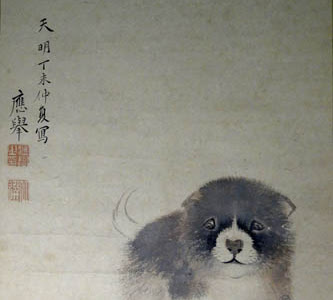 天明丁未仲夏寫
應舉